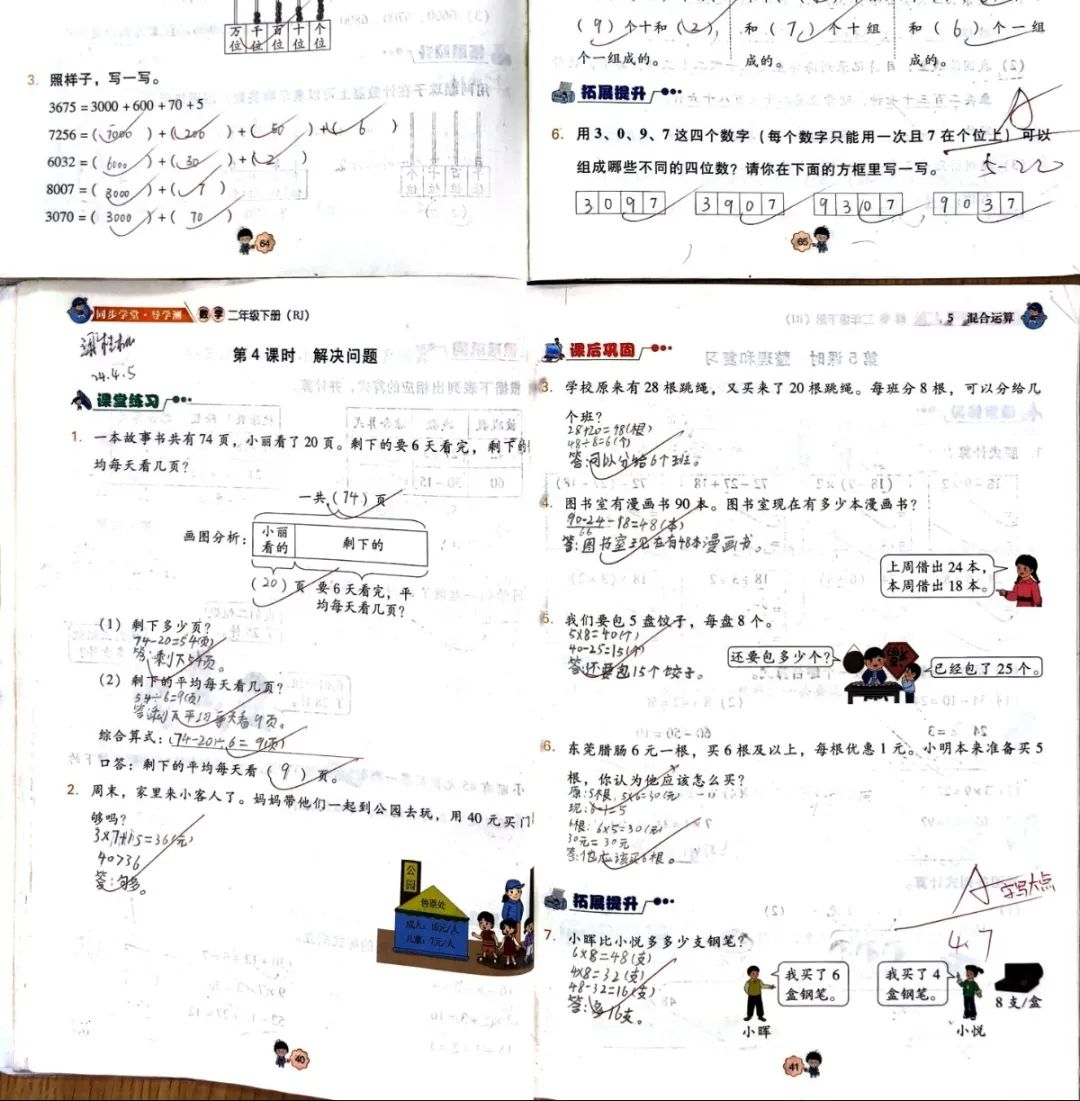 万位 千位 百位 十位 个位
3. 照样子，写一写。
3675 = 3000 + 600 + 70 + 5
7256 = ( 7000 ) + ( 200 ) + ( 50 ) + ( 6 )
6032 = ( 6000 ) + ( 30 ) + ( 2 )
8007 = ( 8000 ) + ( 7 )
3070 = ( 3000 ) + ( 70 )
64
( 9 ) 个十和 ( 2 )
个一组成的。
和 ( 7 ) 个十组
成的。
和 ( 6 ) 个一组
成的。
拓展提升
A
6. 用 3、0、9、7 这四个数字（每个数字只能用一次且 7 在个位上）可以
组成哪些不同的四位数？请你在下面的方框里写一写。
5-22
3 0 9 7
3 9 0 7
9 3 0 7
9 0 3 7
65
同步学堂·导学测 数学 二年级下册（RJ）
24.4.5
第 4 课时 解决问题
课堂练习
1. 一本故事书共有 74 页，小丽看了 20 页。剩下的要 6 天看完，剩下的
均每天看几页？
一共 ( 74 ) 页
画图分析：
小丽看的
剩下的
( 20 ) 页
要 6 天看完，平
均每天看几页？
（1） 剩下多少页？
74-20=54(页)
答：剩下54页。
（2） 剩下的平均每天看几页？
54÷6=9(页)
答：剩下平均每天看9页。
综合算式：(74-20)÷6=9(页)
口答：剩下的平均每天看 ( 9 ) 页。
2. 周末，家里来小客人了。妈妈带他们一起到公园去玩，用 40 元买门
够吗？
3×7+15=36(元)
40>36
答：够。
公园
售票处
成人：15元/人
儿童：7元/人
40
5 混合运算
课后巩固
3. 学校原来有 28 根跳绳，又买来了 20 根跳绳。每班分 8 根，可以分给几
个班？
28+20=48(根)
48÷8=6(个)
答：可以分给6个班。
4. 图书室有漫画书 90 本。图书室现在有多少本漫画书？
90-24-18=48(本)
66
答：图书室现在有48本漫画书。
上周借出 24 本，
本周借出 18 本。
5. 我们要包 5 盘饺子，每盘 8 个。
5×8=40(个)
40-25=15(个)
答：还要包15个饺子。
还要包多少个？
已经包了 25 个。
6. 东莞腊肠 6 元一根，买 6 根及以上，每根优惠 1 元。小明本来准备买 5
根，你认为他应该怎么买？
原：5根，5×6=30(元)
现：6-1=5
6根：6×5=30(元)
30元=30元
答：他应该买6根。
A 字写大点
4.7
拓展提升
7. 小晖比小悦多多少支钢笔？
6×8=48(支)
4×8=32(支)
48-32=16(支)
答：多16支。
我买了 6
盒钢笔。
小晖
我买了 4
盒钢笔。
小悦
8 支/盒
41